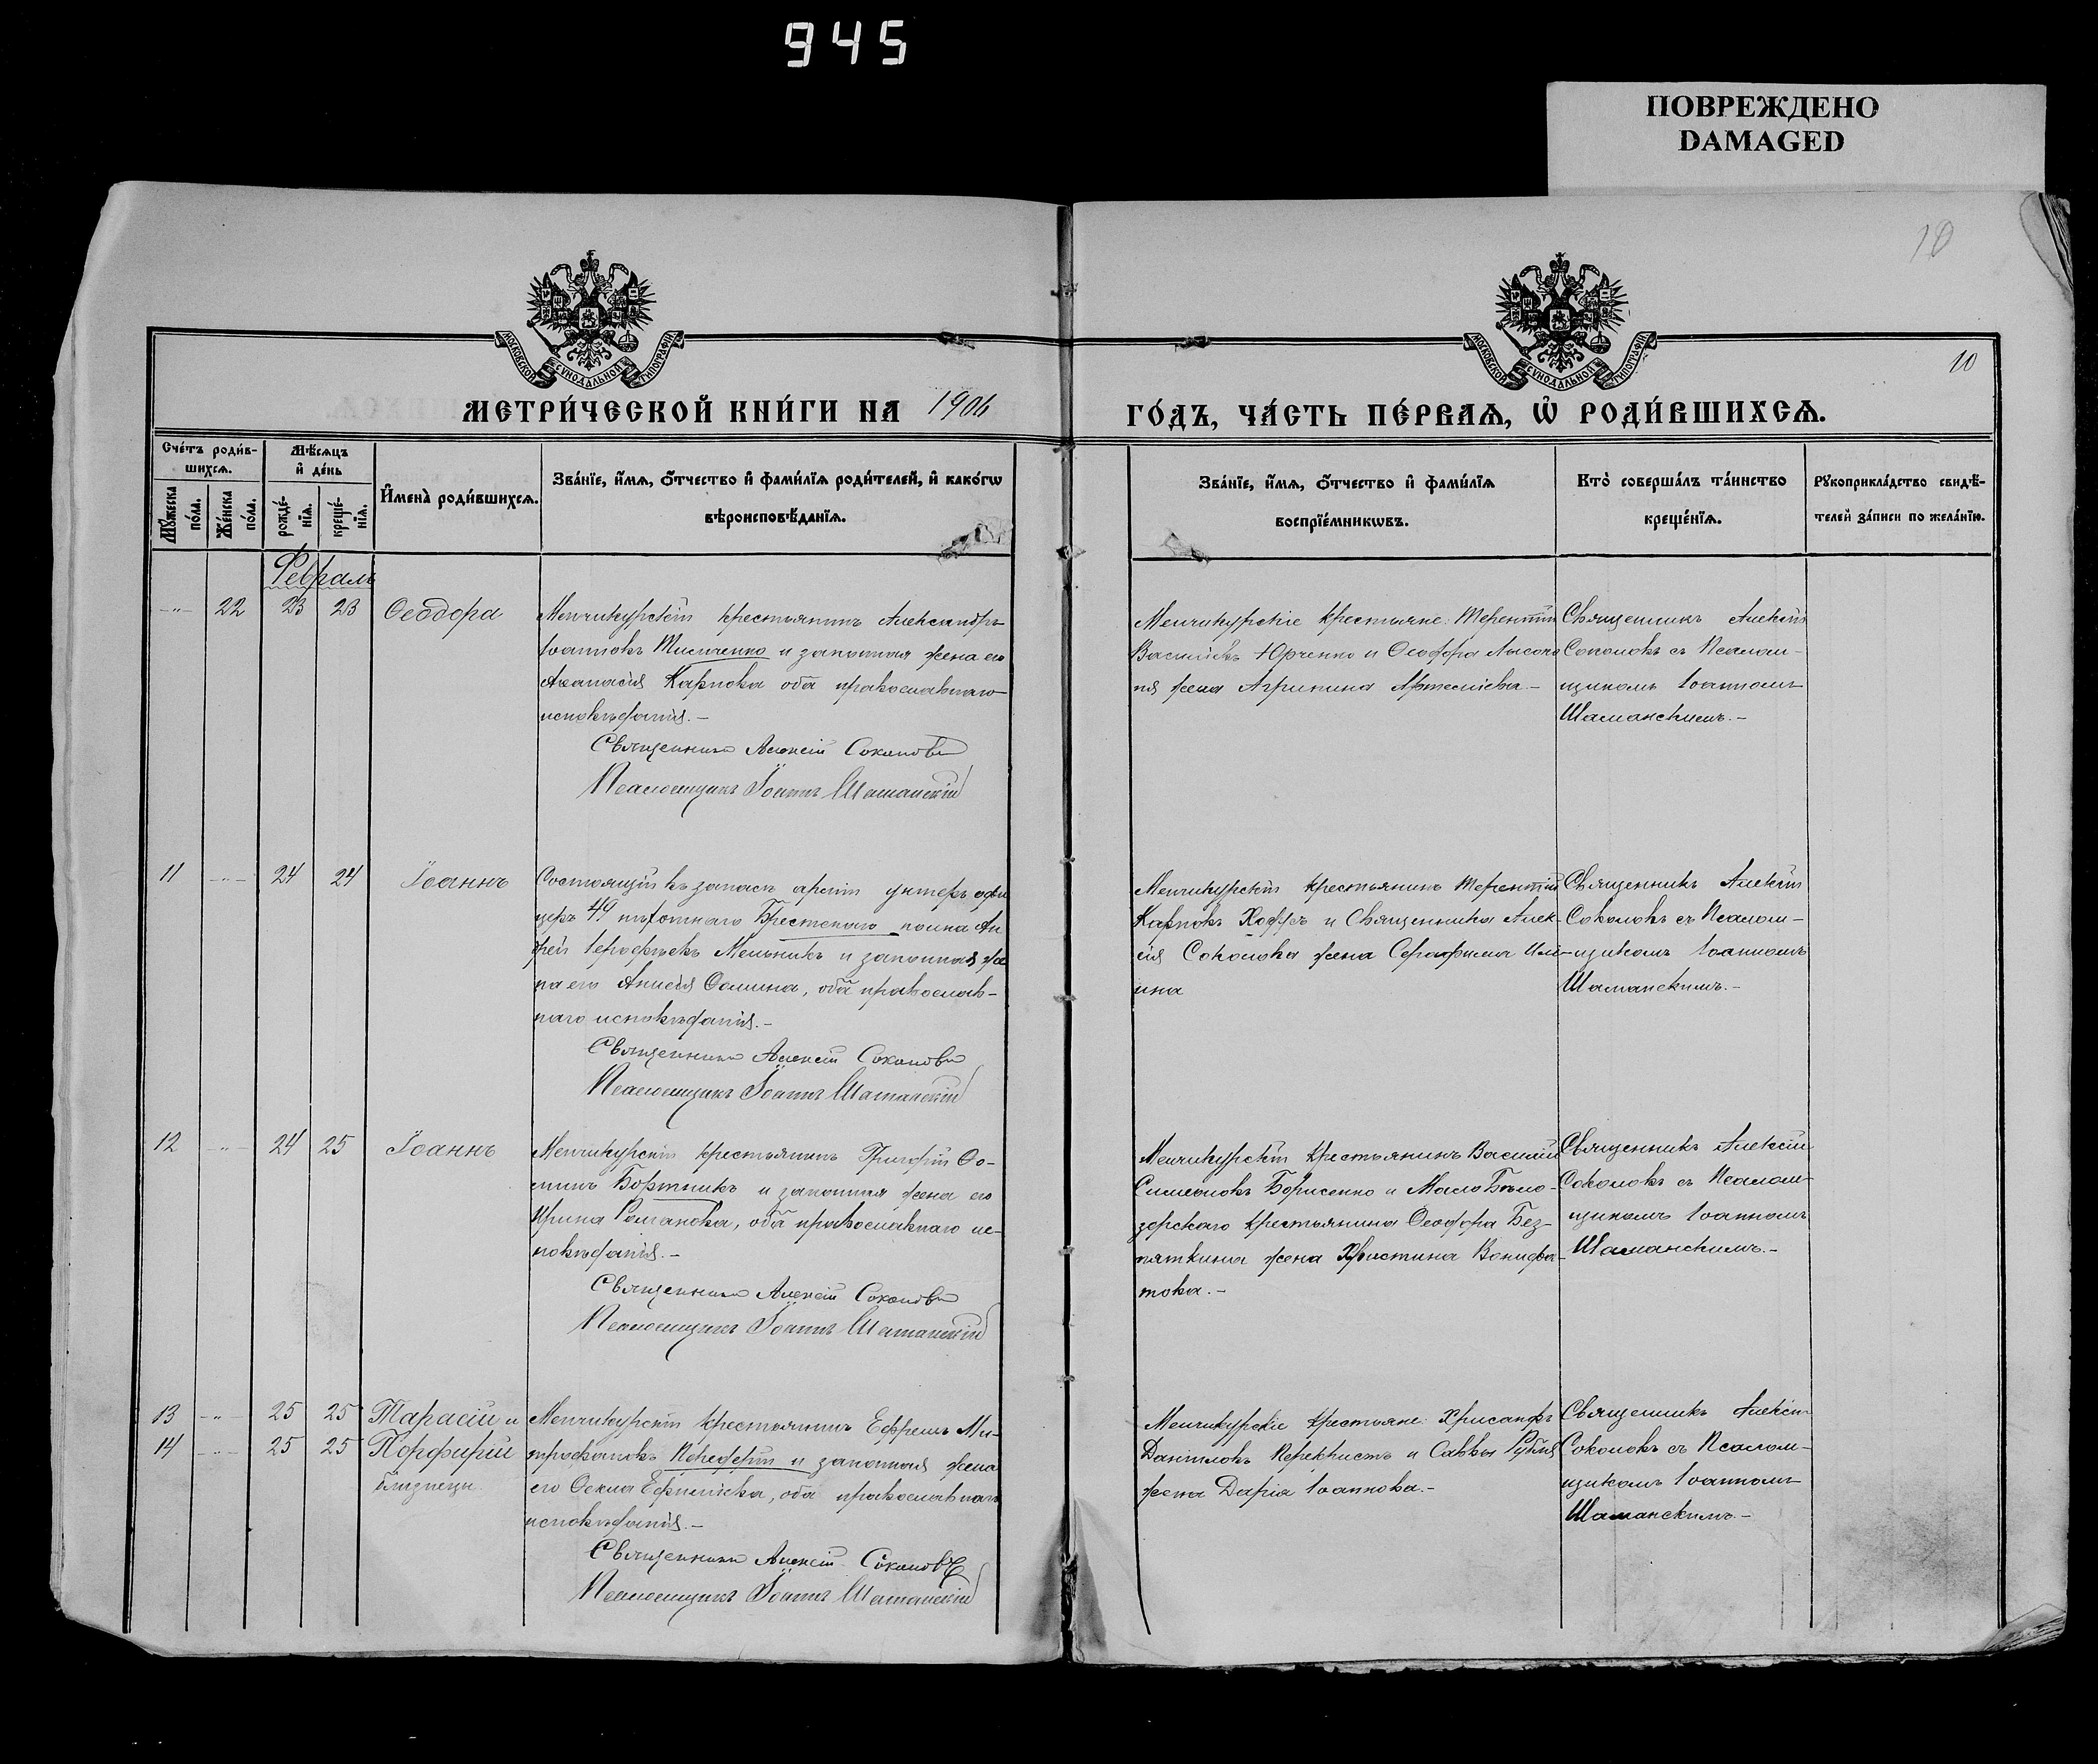 945
ПОВРЕЖДЕНО
DAMAGED
10
10
МОСКОВСКОЙ СѴНОДАЛЬНОЙ ТИПОГРАФІИ
МОСКОВСКОЙ СѴНОДАЛЬНОЙ ТИПОГРАФІИ
МЕТРИ́ЧЕСКОЙ КНИ́ГИ НА 1906 ГО́ДЪ, ЧА́СТЬ ПЕ́РВАѦ, Ѡ РОДИ́ВШИХСѦ.
Сче́тъ роди́в-
шихсѧ.
Мꙋ́жеска
по́ла.
Же́нска
по́ла.
Мѣ́сѧцъ
и҆ де́нь
рожде́-
нїѧ.
креще́-
нїѧ.
И҆мена̀ роди́вшихсѧ.
Зва́нїе, и҆́мѧ, ѻ҆́тчество и҆ фами́лїѧ роди́телей, и҆ како́гѡ
вѣроисповѣ́данїѧ.
Зва́нїе, и҆́мѧ, ѻ҆́тчество и҆ фами́лїѧ
воспрїе́мникѡвъ.
Кто̀ соверша́лъ та́инство
креще́нїѧ.
Рꙋкоприкла́дство свидѣ́-
телей за́писи по жела́нїю.
Февраль
-"- 22 23 23 Ѳеодора
Менчикурскій крестьянинъ Александръ
Іоанновъ Тимченко и законная жена его
Аѳанасія Карпова оба православнаго
исповѣданія.-
Священникъ Алексій Соколовъ
Псаломщикъ Іоаннъ Шаманскій
Менчикурскіе крестьяне: Терентій
Васильевъ Юрченко и Ѳеодора
жена Агрипина Артеміева.-
Священникъ Алексій
Соколовъ съ Псалом-
щикомъ Іоанномъ
Шаманскимъ.-
11 -"- 24 24 Іоаннъ
Состоящій въ запасѣ арміи унтеръ офи
церъ 49 пѣхотнаго Брестскаго полка Ан
дрей Іероѳеевъ Мельникъ и законная же
на его Анисія Ѳомина, оба православ-
наго исповѣданія.-
Священникъ Алексій Соколовъ
Псаломщикъ Іоаннъ Шаманскій
Менчикурскій крестьянинъ Терентій
Карповъ и Священника Алек-
сія Соколова жена Серафима Иль-
ина
Священникъ Алексій
Соколовъ съ Псалом-
щикомъ Іоанномъ
Шаманскимъ.-
12 -"- 24 25 Іоаннъ
Менчикурскій крестьянинъ Григорій Ѳо-
минъ Бортникъ и законная жена его
Ирина Романова, оба православнаго ис-
повѣданія.-
Священникъ Алексій Соколовъ
Псаломщикъ Іоаннъ Шаманскій
Менчикурскій крестьянинъ Василій
Симеоновъ Борисенко и Мало Бѣло-
зерскаго крестьянина Ѳеодора Без-
пяткина жена Христина Вонифа-
това.-
Священникъ Алексій
Соколовъ съ Псалом-
щикомъ Іоанномъ
Шаманскимъ.-
13 -"- 25 25 Тарасій и
14 -"- 25 25 Порфирій
близнецы
Менчикурскій крестьянинъ Ефремъ Ми-
трофановъ и законная жена
его Ѳекла Ефиміева, оба православнаго
исповѣданія.-
Священникъ Алексій Соколовъ
Псаломщикъ Іоаннъ Шаманскій
Менчикурскіе крестьяне: Хрисанфъ
Даніиловъ Перехристъ и Саввы
жена Дарія Іоаннова.-
Священникъ Алексій
Соколовъ съ Псалом-
щикомъ Іоанномъ
Шаманскимъ.-